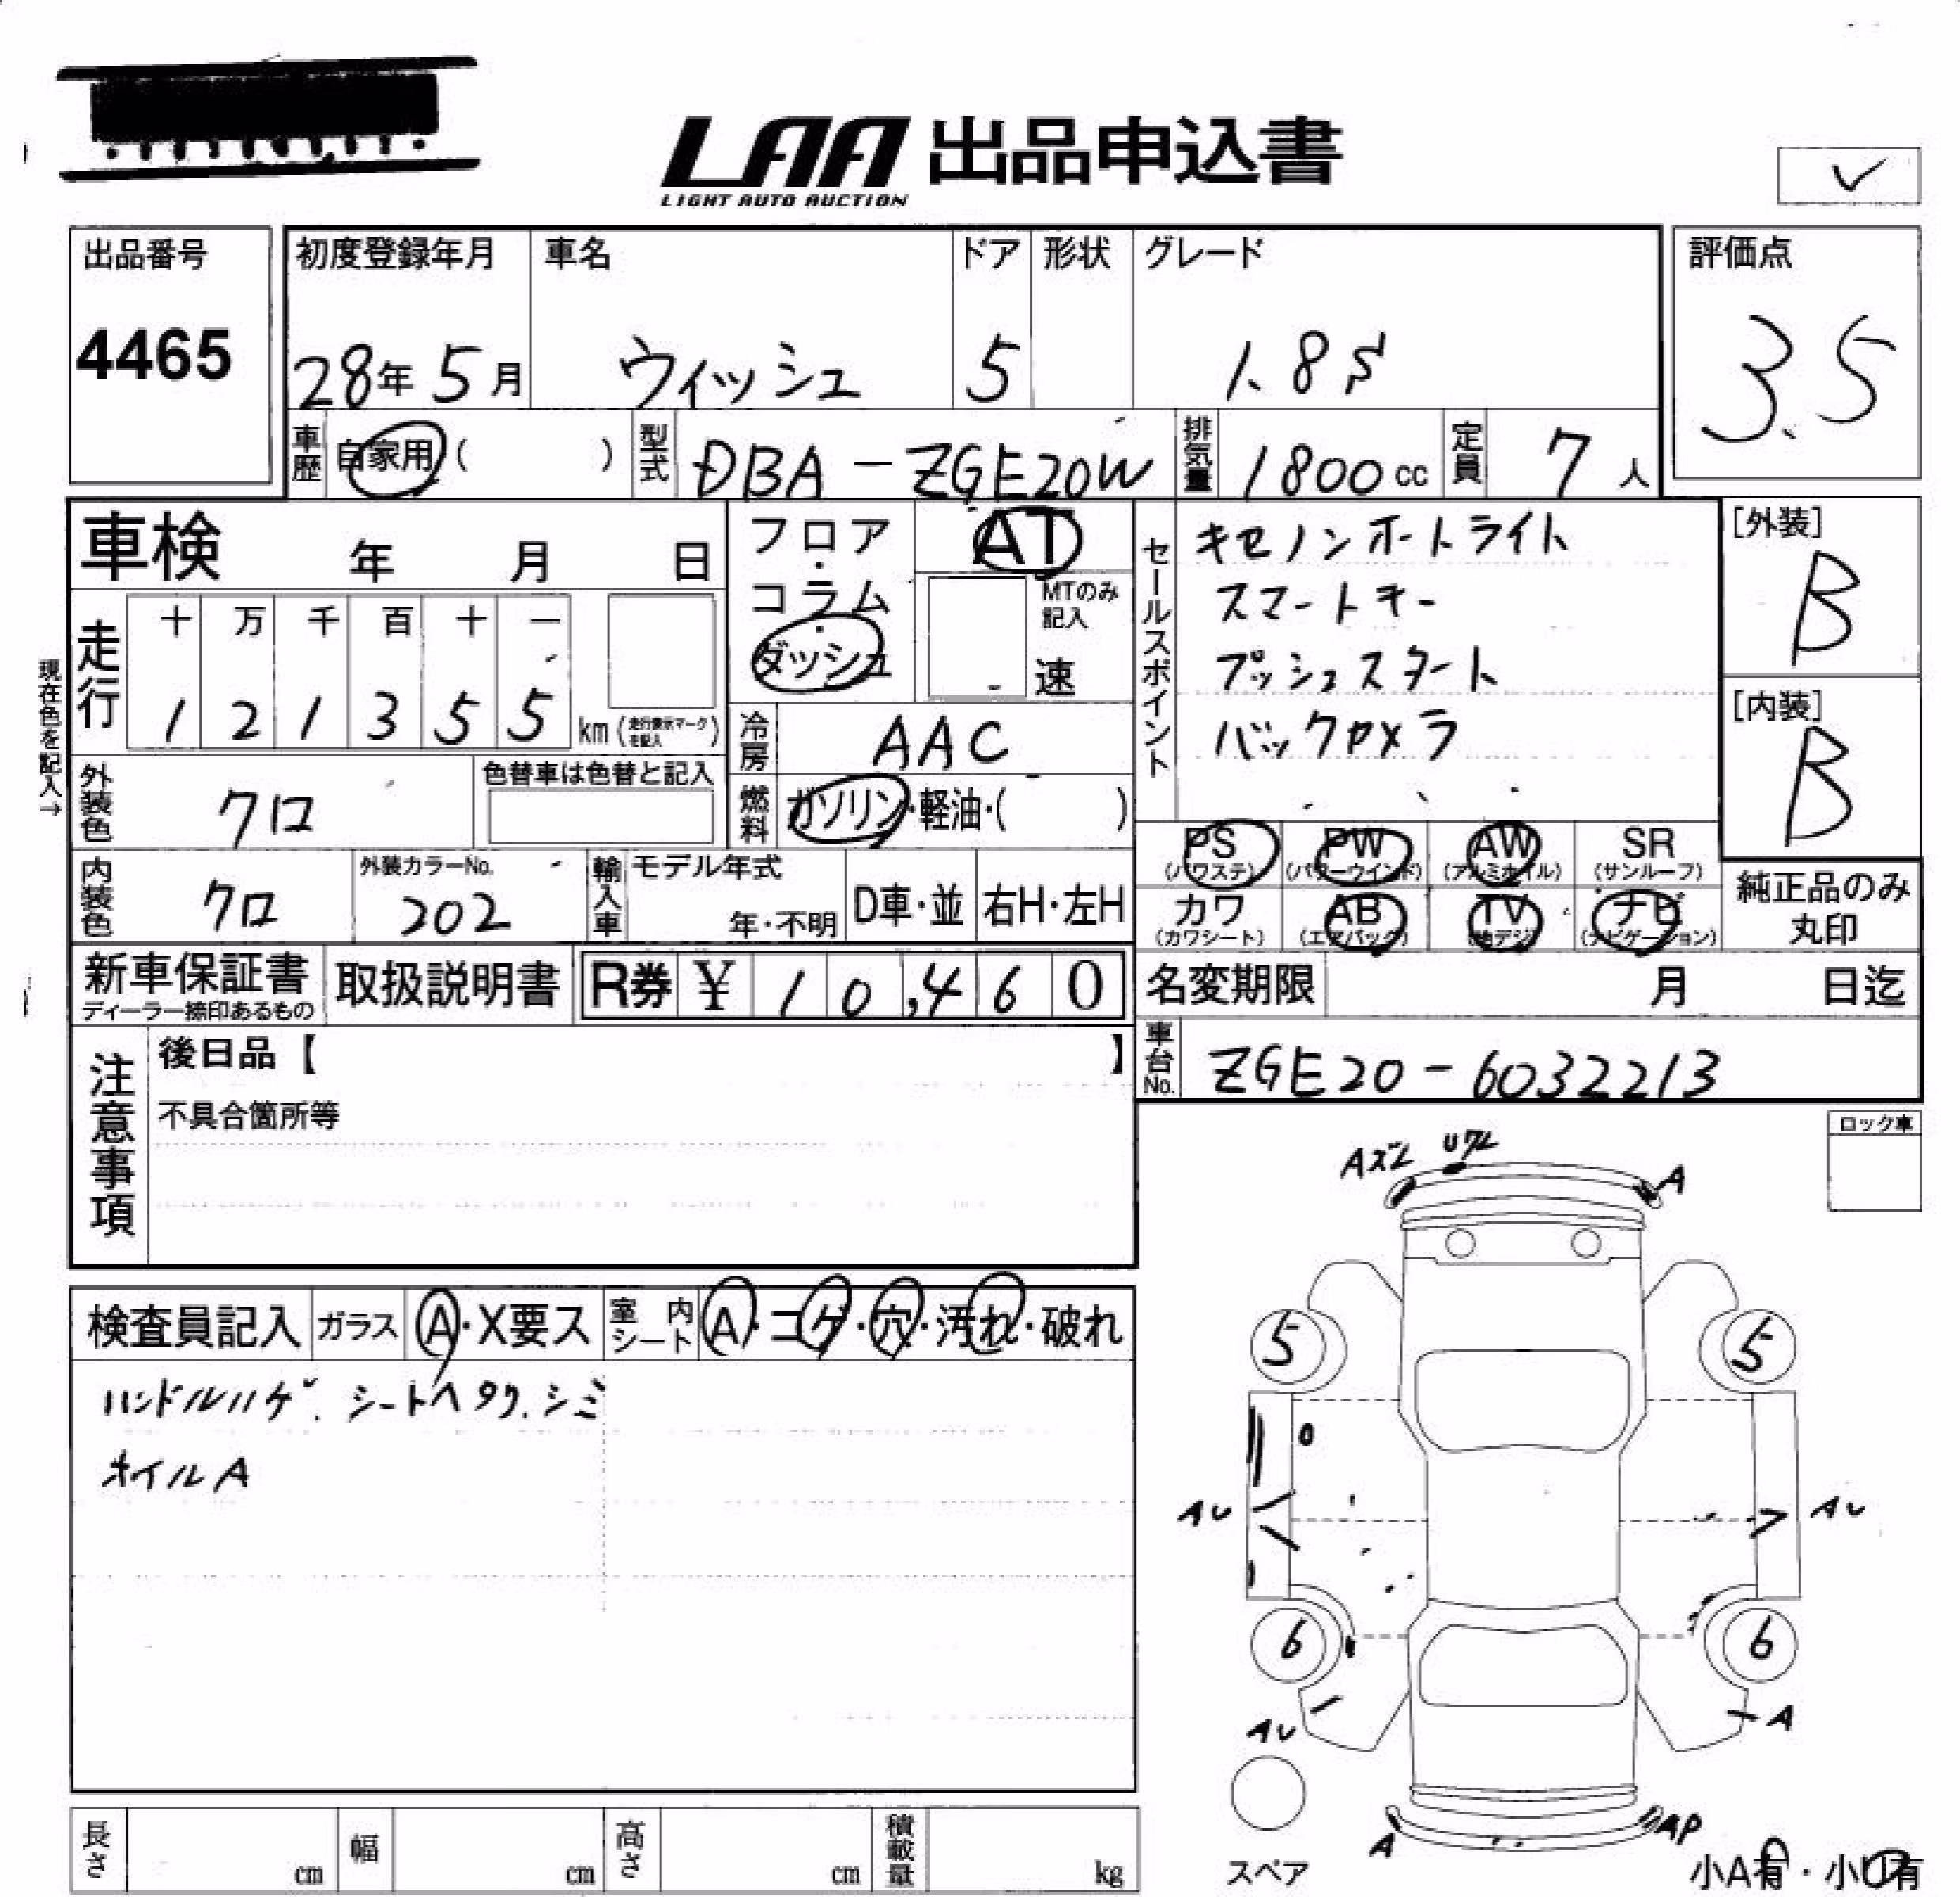 LAA 出品申込書
LIGHT AUTO AUCTION
出品番号
4465
初度登録年月
28年5月
車名
ウィッシュ
ドア
5
形状
グレード
1.8S
評価点
3.5
車歴 自家用 ( )
型式 DBA-ZGE20W
排気量 1800cc
定員 7人
車検 年 月 日
フロア・コラム・ダッシュ
AT
MTのみ記入
速
セールスポイント
キセノンホートライト
スマートキー
プッシュスタート
バックカメラ
[外装]
B
[内装]
B
現在色を記入→
走行
十 万 千 百 十 一
1 2 1 3 5 5 km (走行表示マークを記入)
冷房 AAC
外装色 クロ
色替車は色替と記入
燃料 ガソリン・軽油・( )
PS (パワステ)
PW (パワーウインド)
AW (アルミホイル)
SR (サンルーフ)
カワ (カワシート)
AB (エアバック)
TV (地デジ)
ナビ (ナビゲーション)
純正品のみ丸印
内装色 クロ
外装カラーNo.
202
輸入車
モデル年式
年・不明
D車・並
右H・左H
新車保証書
ディーラー捺印あるもの
取扱説明書
R券 ¥ 10,460
名変期限 月 日迄
車台No. ZGE20-6032213
注意事項
後日品【 】
不具合箇所等
ロック車
Aズレ
A
検査員記入
ガラス A・X要ス
室内シート A・コゲ・穴・汚れ・破れ
ハンドルハゲ、シートヘタリ、シミ
オイルA
5
5
AU
AU
6
6
AU
A
スペア
A
AP
小A有・小U有
長さ cm
幅 cm
高さ cm
積載量 kg